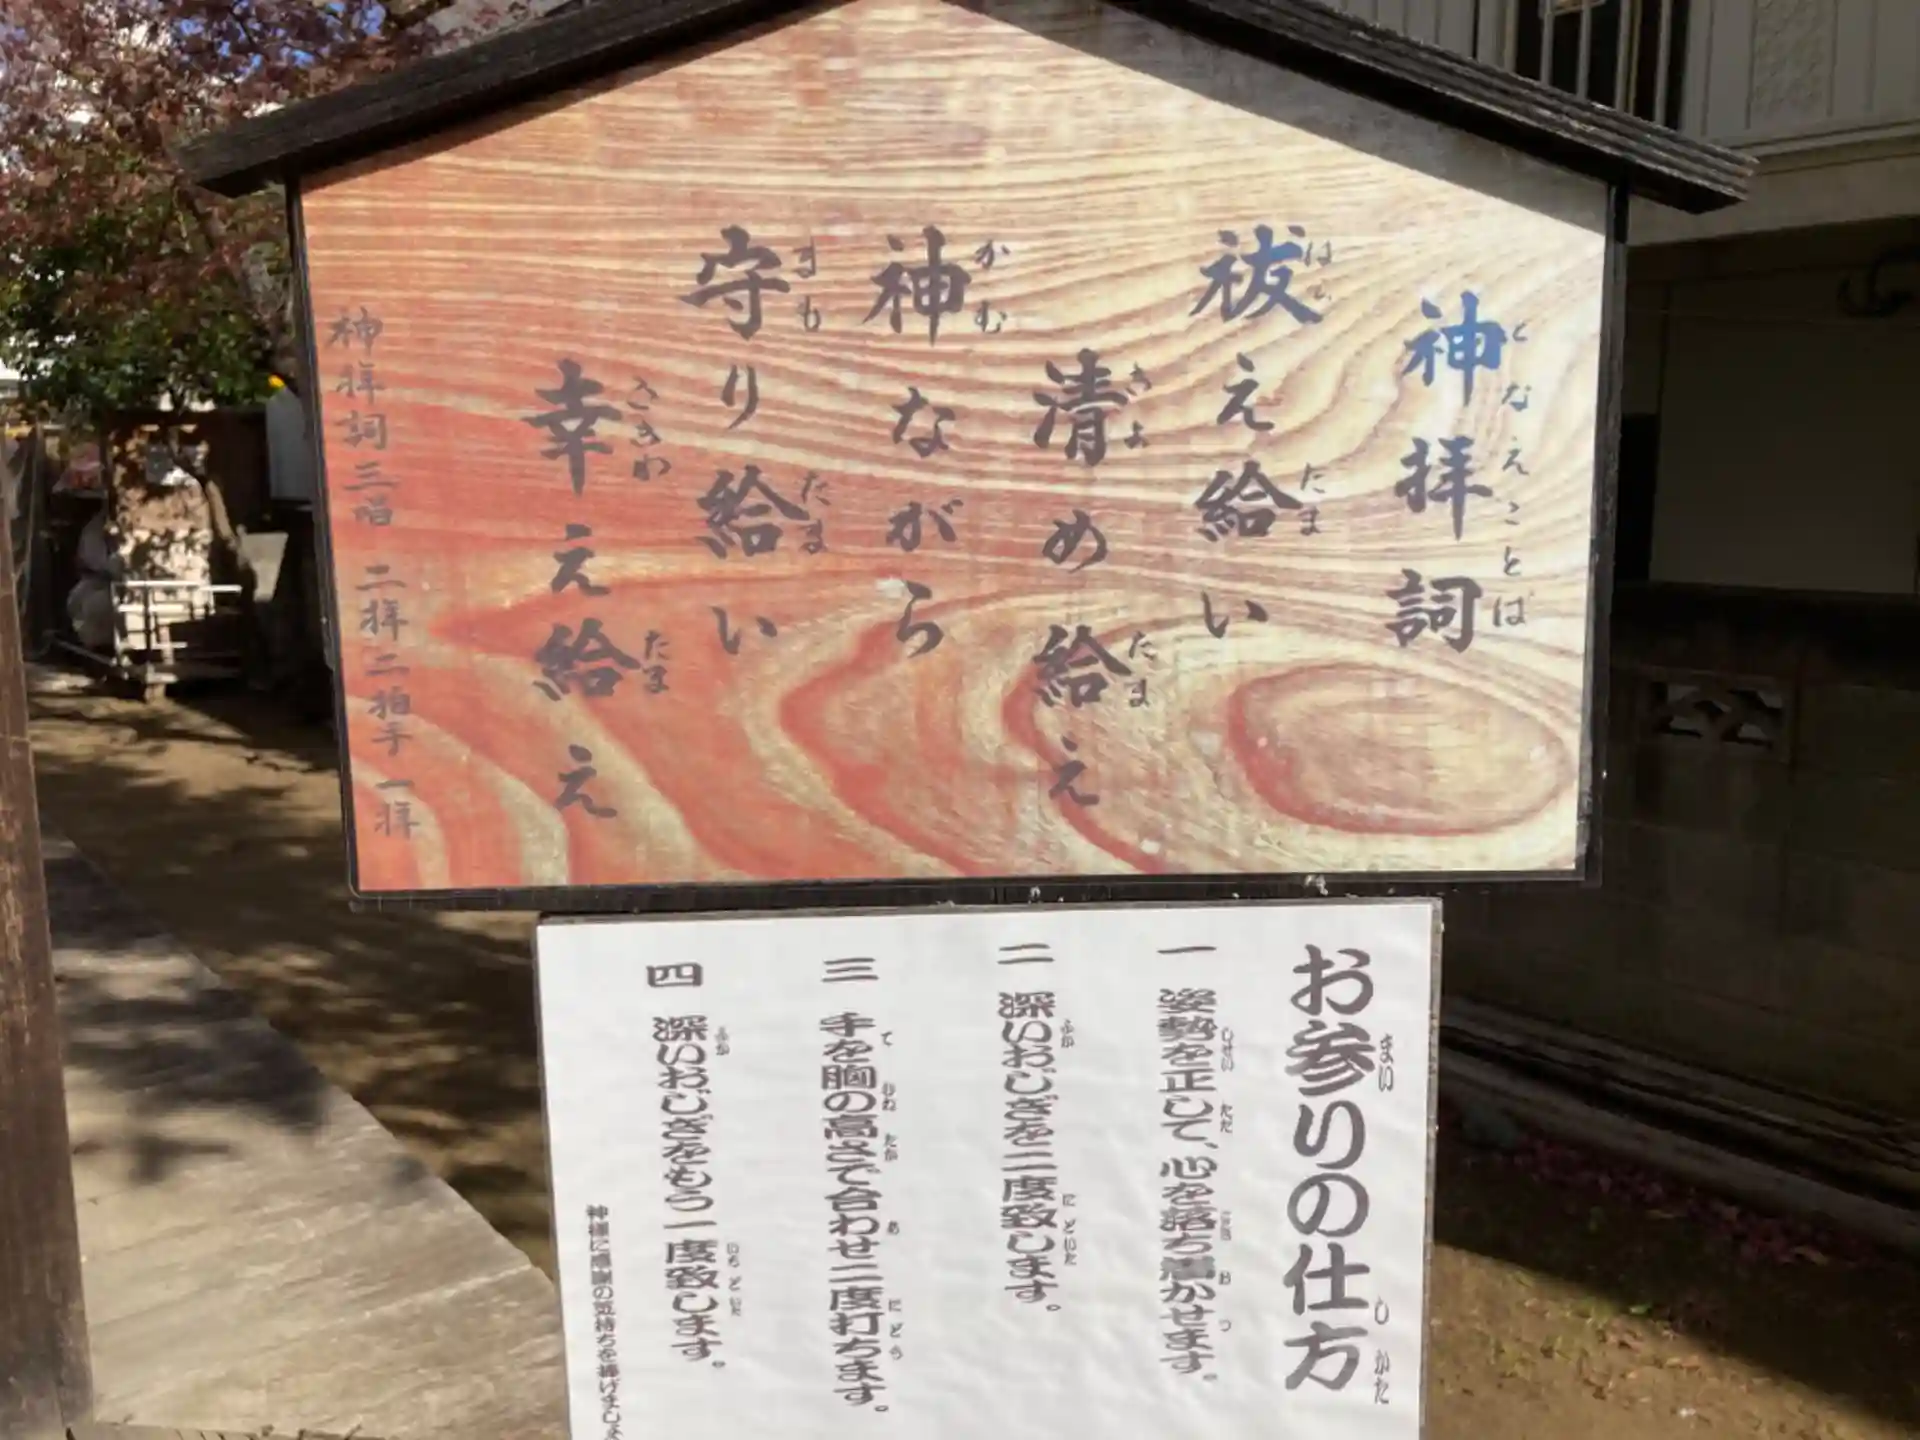 神拝詞
となえことば
祓え給い
清め給え
神ながら
守り給い
幸え給え
神拝詞三唱 二拝二拍手一拝
お参りの仕方
一 姿勢を正して、心を落ち着かせます。
二 深いおじぎを二度致します。
三 手を胸の高さで合わせ二度打ちます。
四 深いおじぎをもう一度致します。
神様に感謝の気持ちを捧げましょ